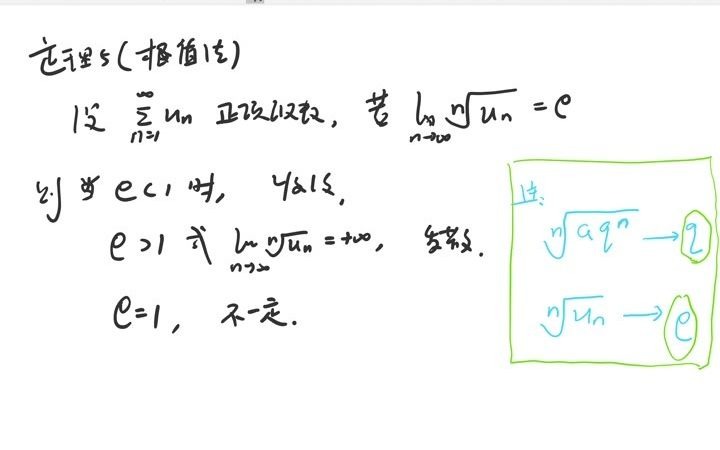 定理5(根值法)
设 $\sum_{n=1}^{\infty} u_n$ 正项级数, 若 $\lim_{n\to\infty} \sqrt[n]{u_n} = \rho$
则 当 $\rho<1$ 时, 收敛,
$\rho>1$ 或 $\lim_{n\to\infty} \sqrt[n]{u_n} = +\infty$, 发散.
$\rho=1$, 不一定.
注:
$\sqrt[n]{aq^n} \to q$
$\sqrt[n]{u_n} \to \rho$